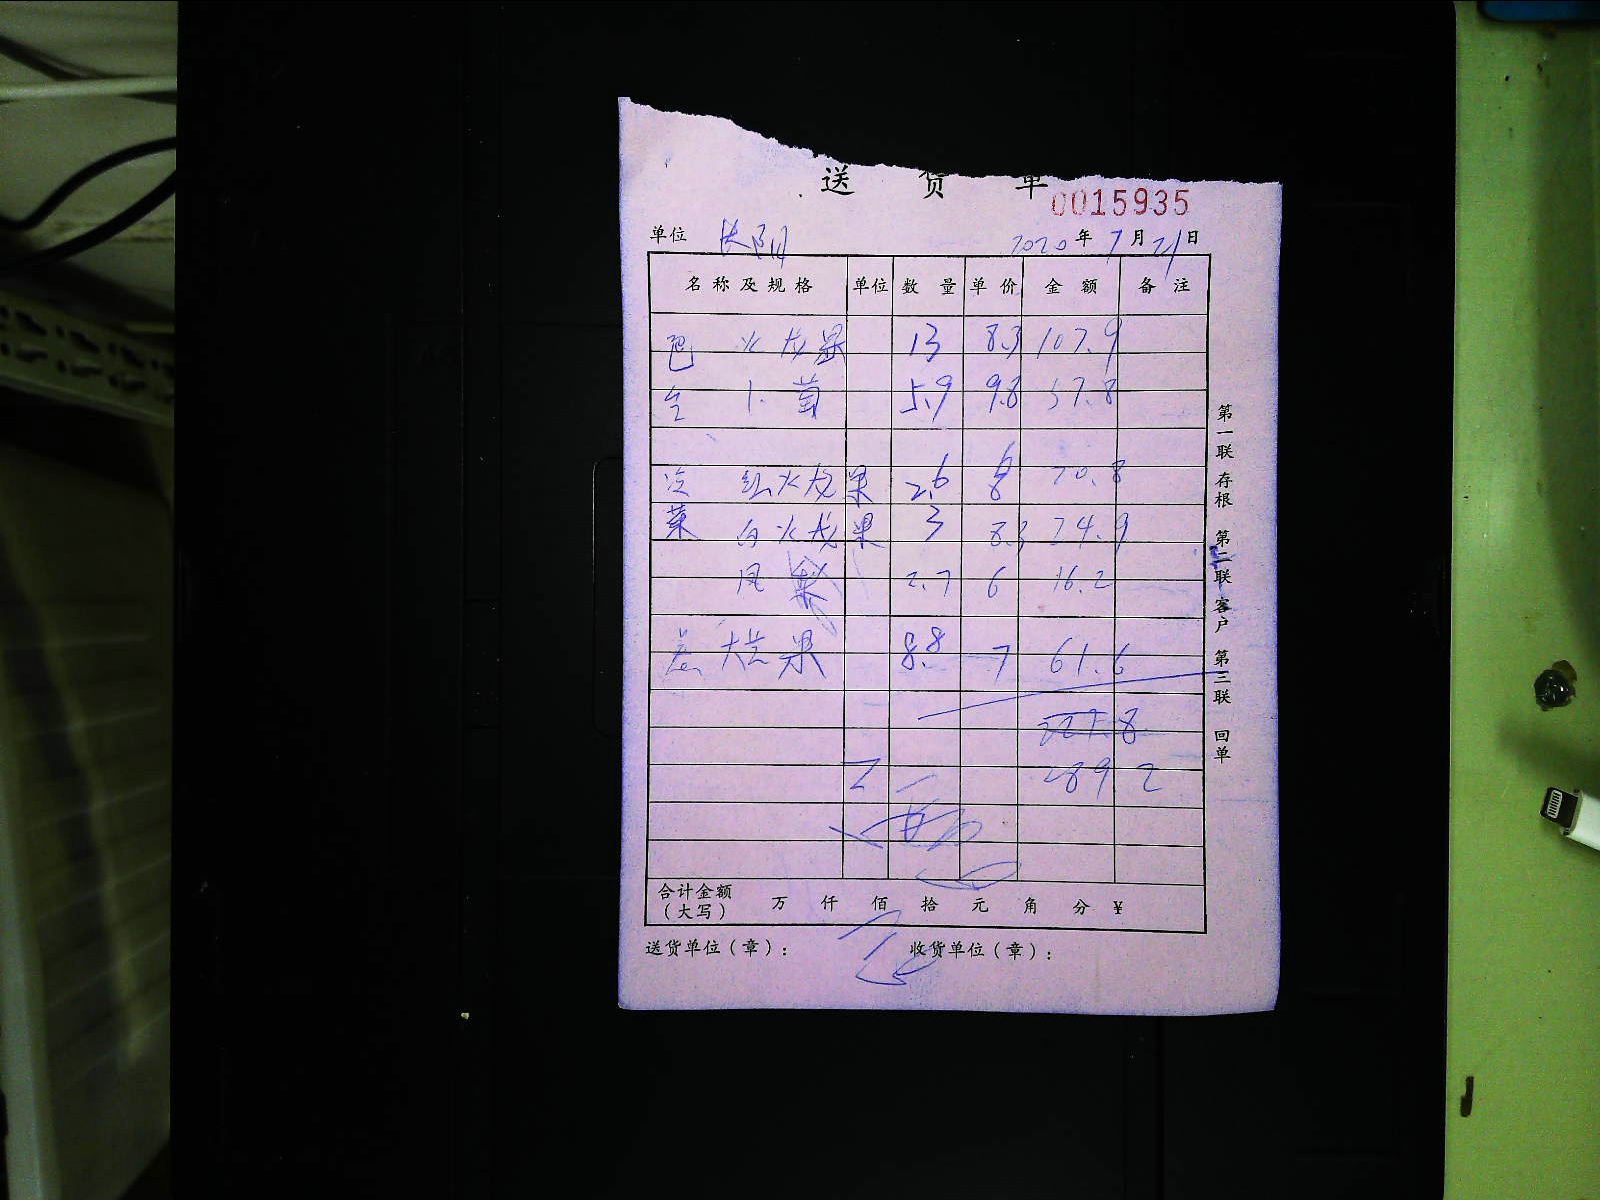 送 货 单
0015935
单位 2020 年 7 月 21 日
名称及规格 单位 数量 单价 金额 备注
火龙果 13 8.3 107.9
5.9 9.8 57.8
红火龙果 2.6 8 20.8
菜 白火龙果 3 8.3 24.9
凤 2.7 6 16.2
果 8.8 7 61.6
289 2
合计金额（大写） 万 仟 佰 拾 元 角 分 ¥
送货单位（章）： 收货单位（章）：
第一联 存根 第二联 客户 第三联 回单